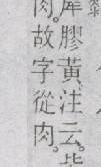 犀膠黃注云皆
肉。故字從肉。